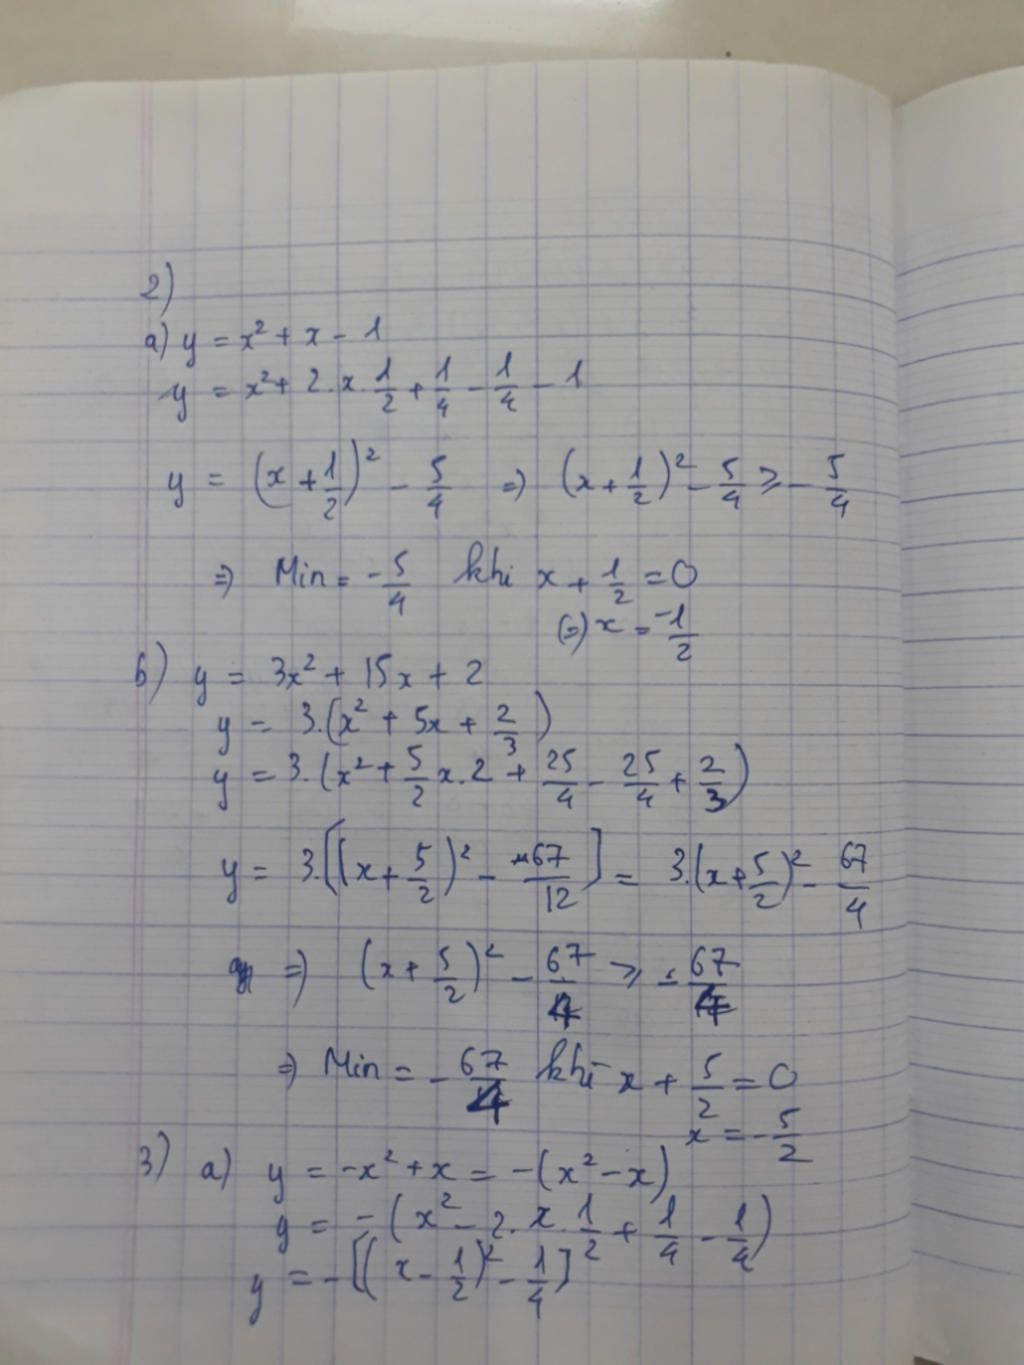 2)
a) y = x² + x - 1
y = x² + 2.x.1/2 + 1/4 - 1/4 - 1
y = (x + 1/2)² - 5/4 => (x + 1/2)² - 5/4 ≥ - 5/4
=> Min = -5/4 khi x + 1/2 = 0
(=) x = -1/2
b) y = 3x² + 15x + 2
y = 3.(x² + 5x + 2/3)
y = 3.(x² + 5/2 x.2 + 25/4 - 25/4 + 2/3)
y = 3.[(x + 5/2)² - 67/12] = 3.(x + 5/2)² - 67/4
=> (x + 5/2)² - 67/4 ≥ - 67/4
=> Min = - 67/4 khi x + 5/2 = 0
x = - 5/2
3) a) y = -x² + x = -(x² - x)
y = - (x² - 2.x.1/2 + 1/4 - 1/4)
y = - [(x - 1/2)² - 1/4]